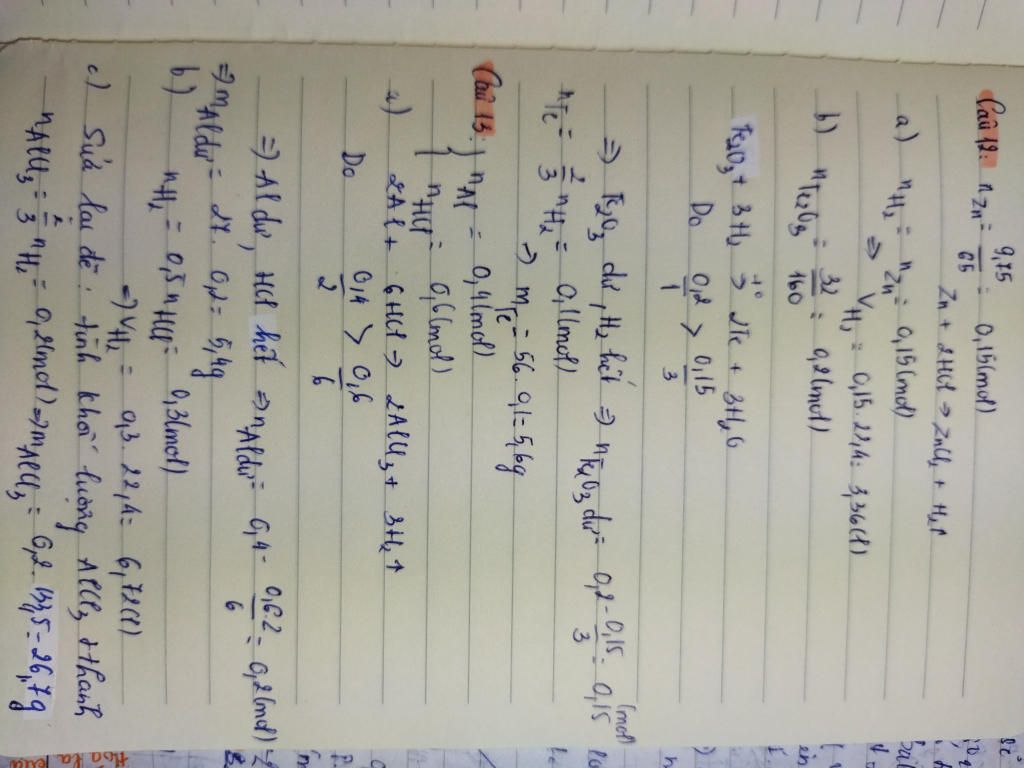 Câu 12: nZn = 9,75/65 = 0,15(mol)
Zn + 2HCl → ZnCl2 + H2↑
a) nH2 = nZn = 0,15(mol)
⇒ VH2 = 0,15.22,4 = 3,36(l)
b) nFe2O3 = 32/160 = 0,2(mol)
Fe2O3 + 3H2 →t° 2Fe + 3H2O
Do 0,2/1 > 0,15/3
⇒ Fe2O3 dư, H2 hết ⇒ nFe2O3 dư = 0,2 - 0,15/3 = 0,15 (mol)
nFe = 2/3 nH2 = 0,1(mol)
⇒ mFe = 56.0,1 = 5,6g
Câu 13: { nAl = 0,4(mol)
nHCl = 0,6(mol)
a) 2Al + 6HCl → 2AlCl3 + 3H2↑
Do 0,4/2 > 0,6/6
⇒ Al dư, HCl hết ⇒ nAl dư = 0,4 - 0,6.2/6 = 0,2(mol)
⇒ mAl dư = 27.0,2 = 5,4g
b) nH2 = 0,5nHCl = 0,3(mol)
⇒ VH2 = 0,3.22,4 = 6,72(l)
c) Sửa lại đề: tính khối lượng AlCl3 tthành
nAlCl3 = 2/3 nH2 = 0,2(mol) ⇒ mAlCl3 = 0,2.133,5 = 26,7g